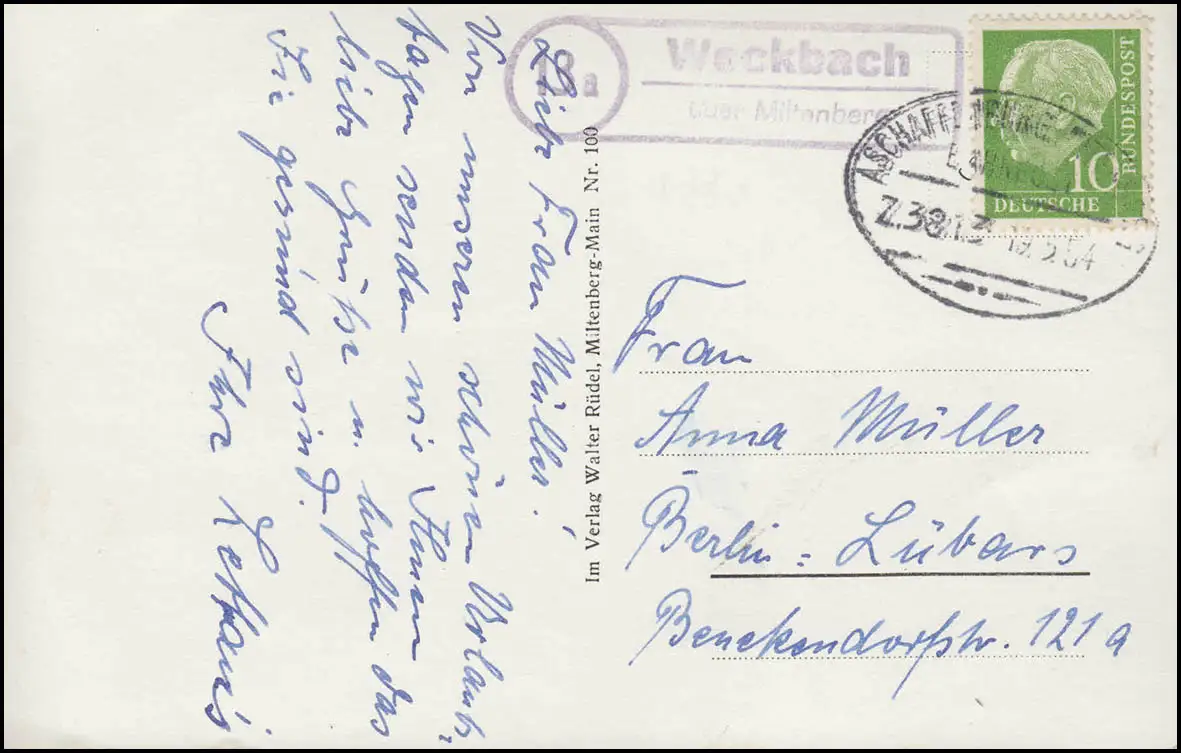 13a
Weckbach
über Miltenberg
DEUTSCHE
BUNDESPOST
10
ASCHAFFENBURG
BAHNPOST
Z.3813 19.5.54
Liebe Frau Müller!
Von unseren schönen Urlaubs-
tagen senden wir Ihnen
liebe Grüße u. hoffen das
Sie gesund sind.
Ihre
Im Verlag Walter Rüdel, Miltenberg-Main Nr. 100
Frau
Anna Müller
Berlin-Lübars
Benekendorfstr. 121a